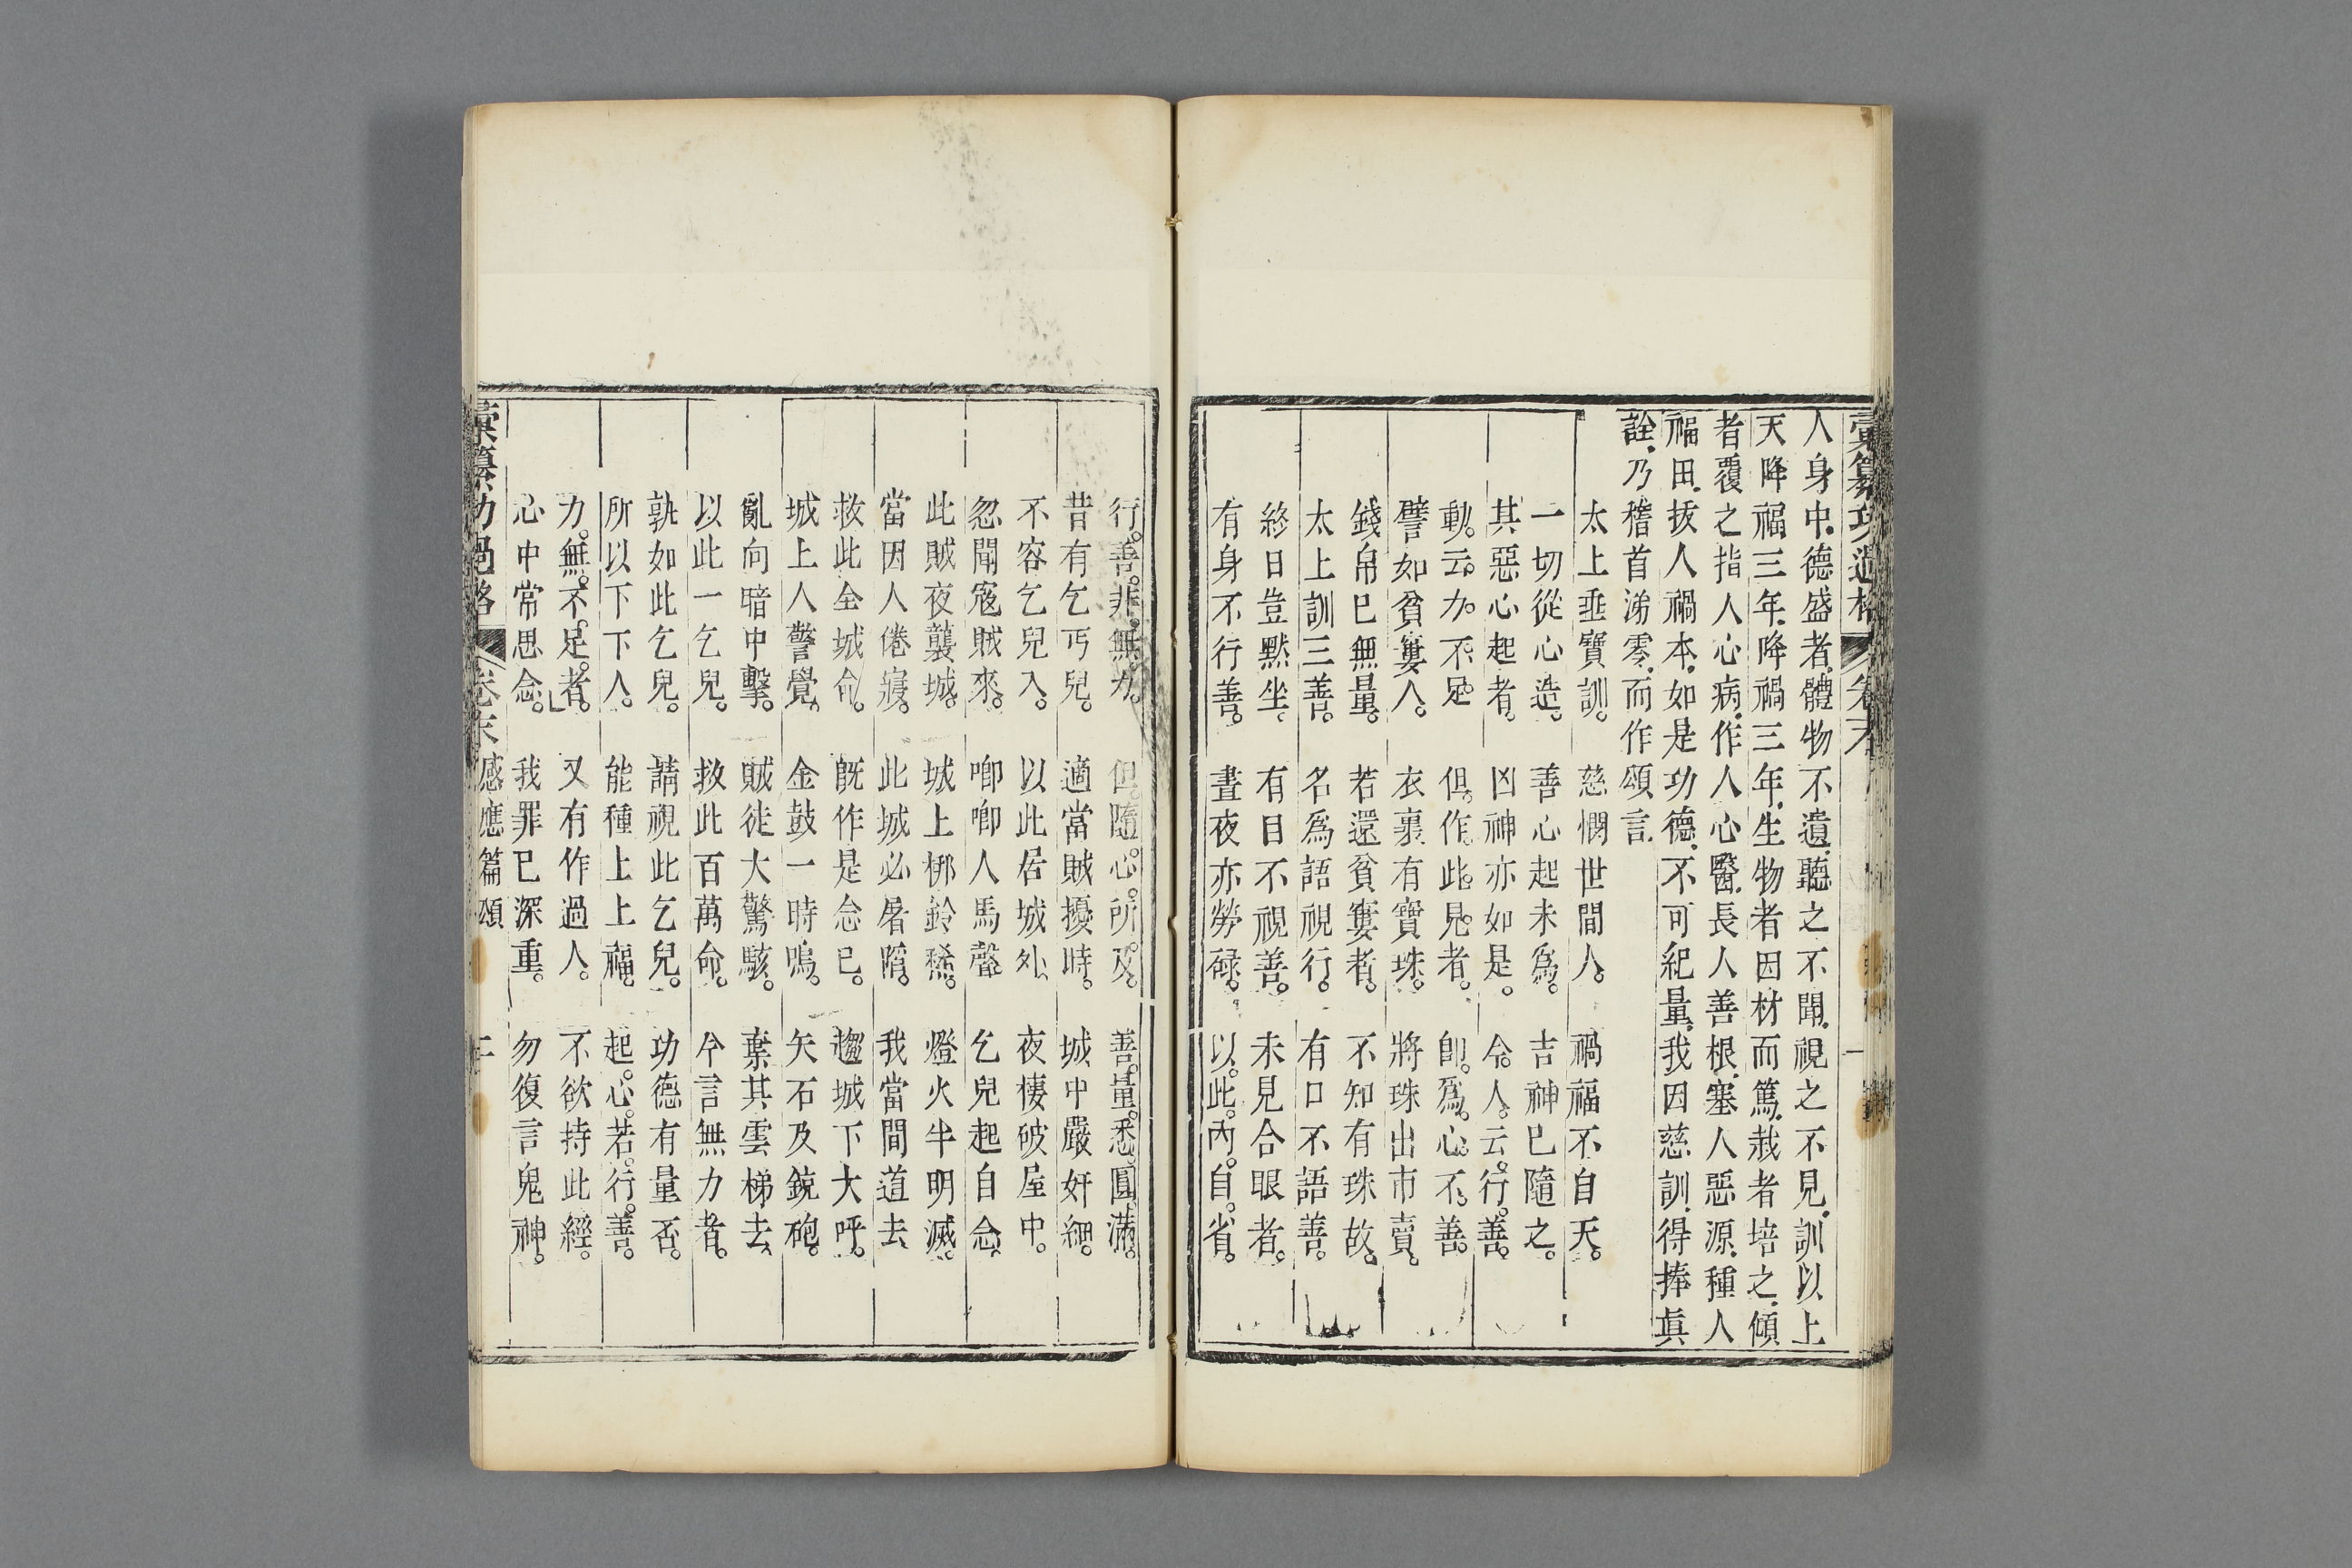 彙纂功過格 卷末
人身中德盛者體物不遺聽之不聞視之不見訓以上
天降福三年降禍三年生物者因材而篤栽者培之傾
者覆之指人心病作人心醫長人善根塞人惡源種人
福田拔人禍本如是功德不可紀量我因慈訓得捧眞
詮乃稽首涕零而作頌言
太上垂寶訓。 慈憫世間人。 禍福不自天。
一切從心造。 善心起未爲。 吉神已隨之。
其惡心起者。 凶神亦如是。 今人云行善。
動云力不足 但作此見者。 卽爲心不善。
譬如貧寠人。 衣裏有寶珠。 將珠出市賣。
錢帛已無量。 若還貧寠者。 不知有珠故。
太上訓三善。 名爲語視行。 有口不語善。
終日豈默坐。 有目不視善。 未見合眼者。
有身不行善。 晝夜亦勞碌。 以此內自省。
行善非無力。 但隨心所及。 善量悉圓滿。
昔有乞丐兒。 適當賊擾時。 城中嚴奸細。
不容乞兒入。 以此居城外、 夜棲破屋中。
忽聞寇賊來。 啣啣人馬聲 乞兒起自念、
此賊夜襲城。 城上梆鈴稀。 燈火半明滅。
當因人倦寢。 此城必屠隋。 我當間道去
救此全城命。 既作是念已。 趨城下大呼。
城上人警覺、 金鼓一時鳴。 矢石及銃砲。
亂向暗中擊。 賊徒大驚駭。 棄其雲梯去、
以此一乞兒。 救此百萬命。 今言無力者。
孰如此乞兒。 請視此乞兒。 功德有量否。
所以下下人。 能種上上福。 起心若行善。
力無不足者。 又有作過人。 不欲持此經。
心中常思念。 我罪已深重。 勿復言鬼神。
彙纂功過格 卷末 感應篇頌 二